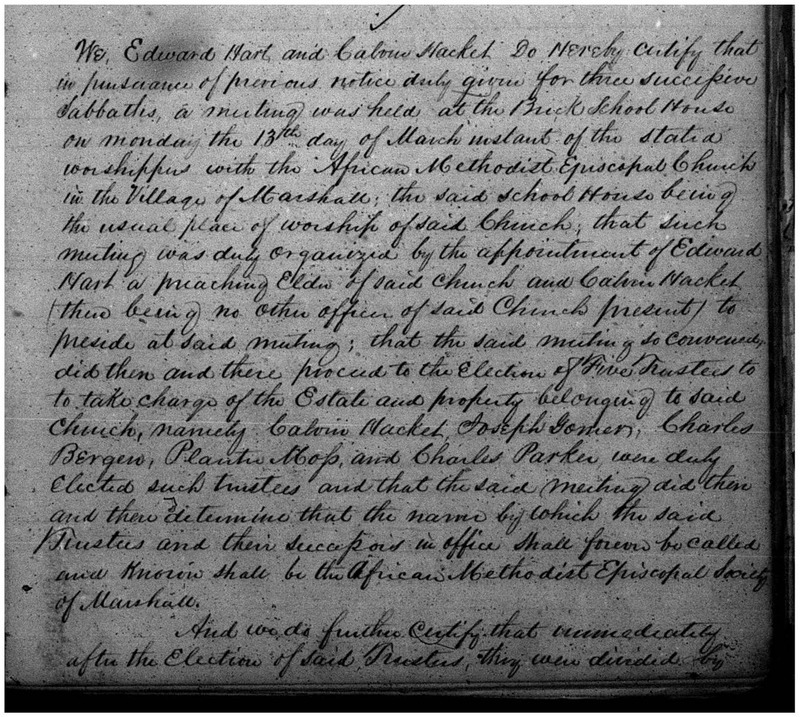 We, Edward Hart and Calvin Hacket Do Hereby certify that
in pursuance of previous notice duly given for three successive
Sabbaths, a meeting was held at the Brick School House
on monday the 13th day of March instant of the stated
worshippers with the African Methodist Episcopal Church
in the Village of Marshall; the said school House being
the usual place of worship of said Church; that such
meeting was duly organized by the appointment of Edward
Hart a preaching Elder of said church and Calvin Hacket
(there being no other officer of said Church present) to
preside at said meeting; that the said meeting so convened,
did then and there proceed to the Election of Five Trustees to
to take charge of the Estate and property belonging to said
Church, namely Calvin Hacket, Joseph Gomer, Charles
Bergen, Planter Moss, and Charles Parker were duly
elected such trustees and that the said meeting did then
and there determine that the name by which the said
Trustees and their successors in office shall forever be called
and Known shall be the African Methodist Episcopal Society
of Marshall.
And we do further certify that immediately
after the Election of said Trustees, they were divided by